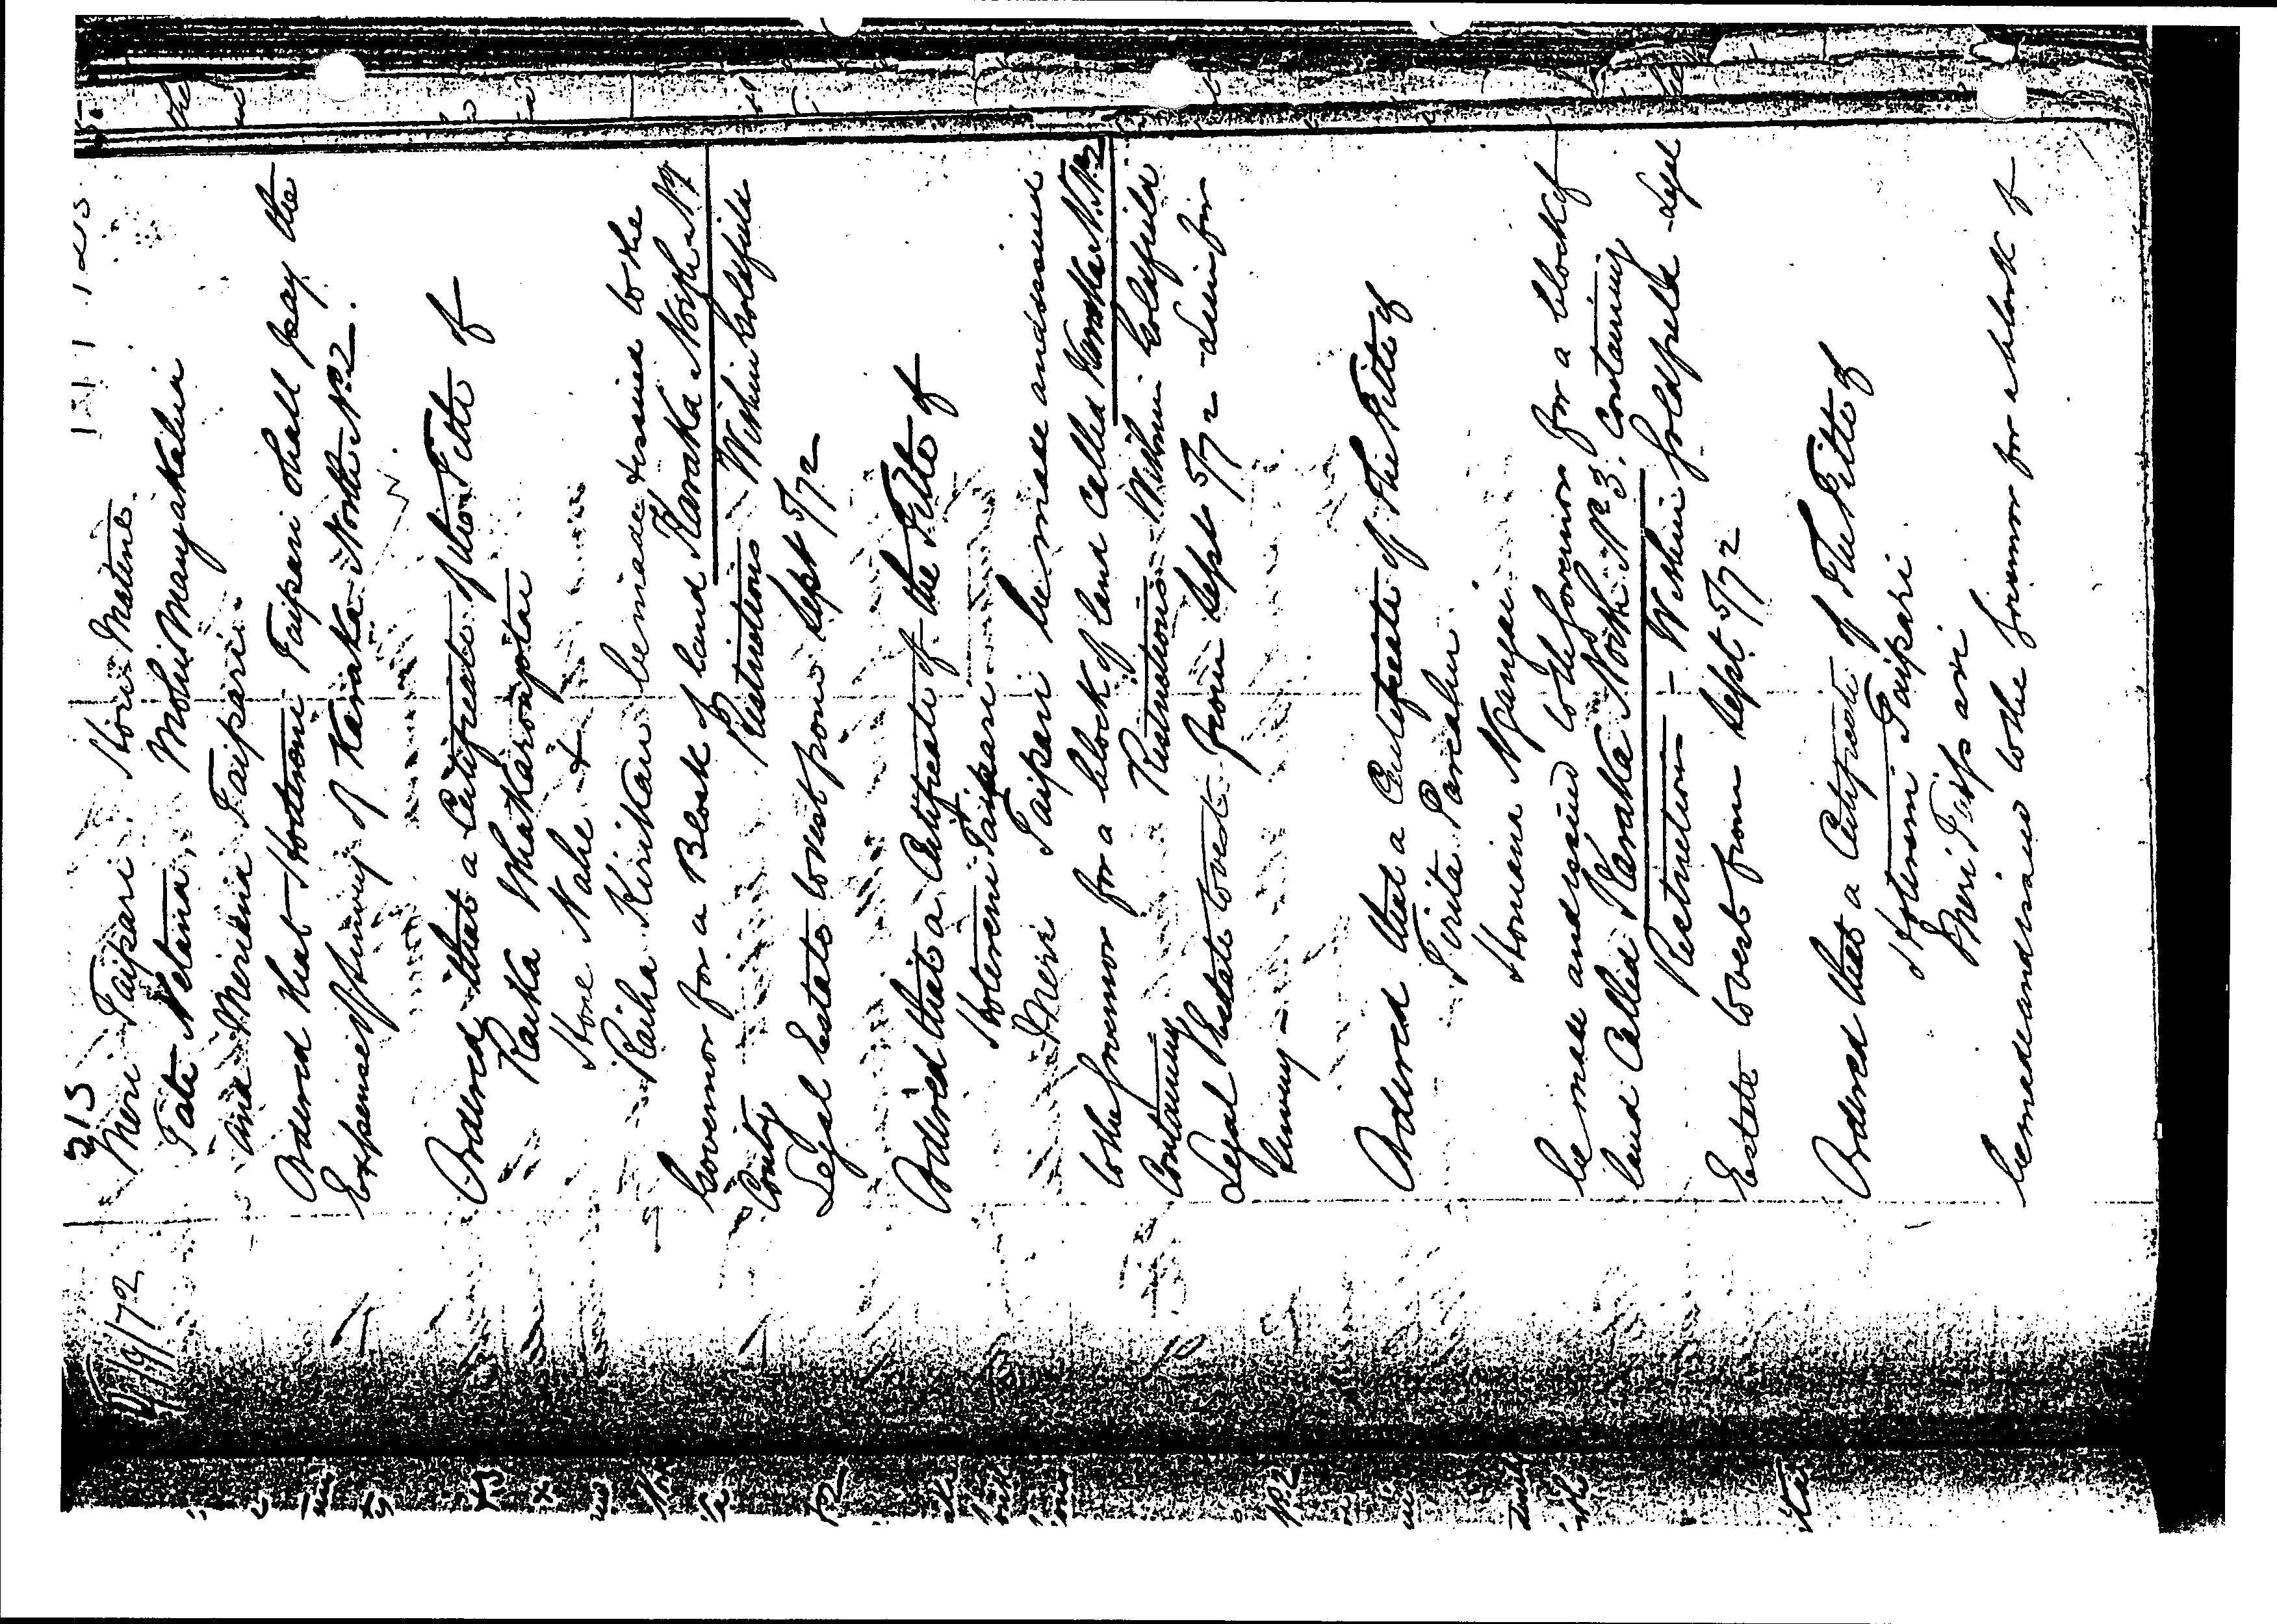 213
5/9/72
Meri Taipari Hori Matene
Tate Netana, Mohi Mangakahia
and Meriana Taipari.
Ordered that Hotereni Taipari shall pay the
Expense of Survey of Karaka North No. 2.
Ordered that a Certificate of the Title of
Raika Whakarongotai
Hone Nahe &
Raiha Kirikau be made & issued to the
Governor for a Block of land Karaka North No 1
Contg Restrictions Within Goldfield
Legal Estate to vest from Sept 5/72
Ordered that a Certificate of the Title of
Hotereni Taipari
Meri Taipari be made and issued
to the Governor for a block of land called Karaka N. No 2
Containing Restrictions Within Goldfield
Legal Estate to vest from Sept 5/72 Lien for
Survey
Ordered that a Certificate of the Title of
Tirita
Homana Ngangai
be made and issued to the Governor for a block of
land Called Karaka North No 3. Containing
Restriction - Within Goldfield Legal
Estate to vest from Sept. 5/72
Ordered that a Certificate of The Title of
Hotereni Taipari
Meri Taipari
be made and issued to the Governor for a block of